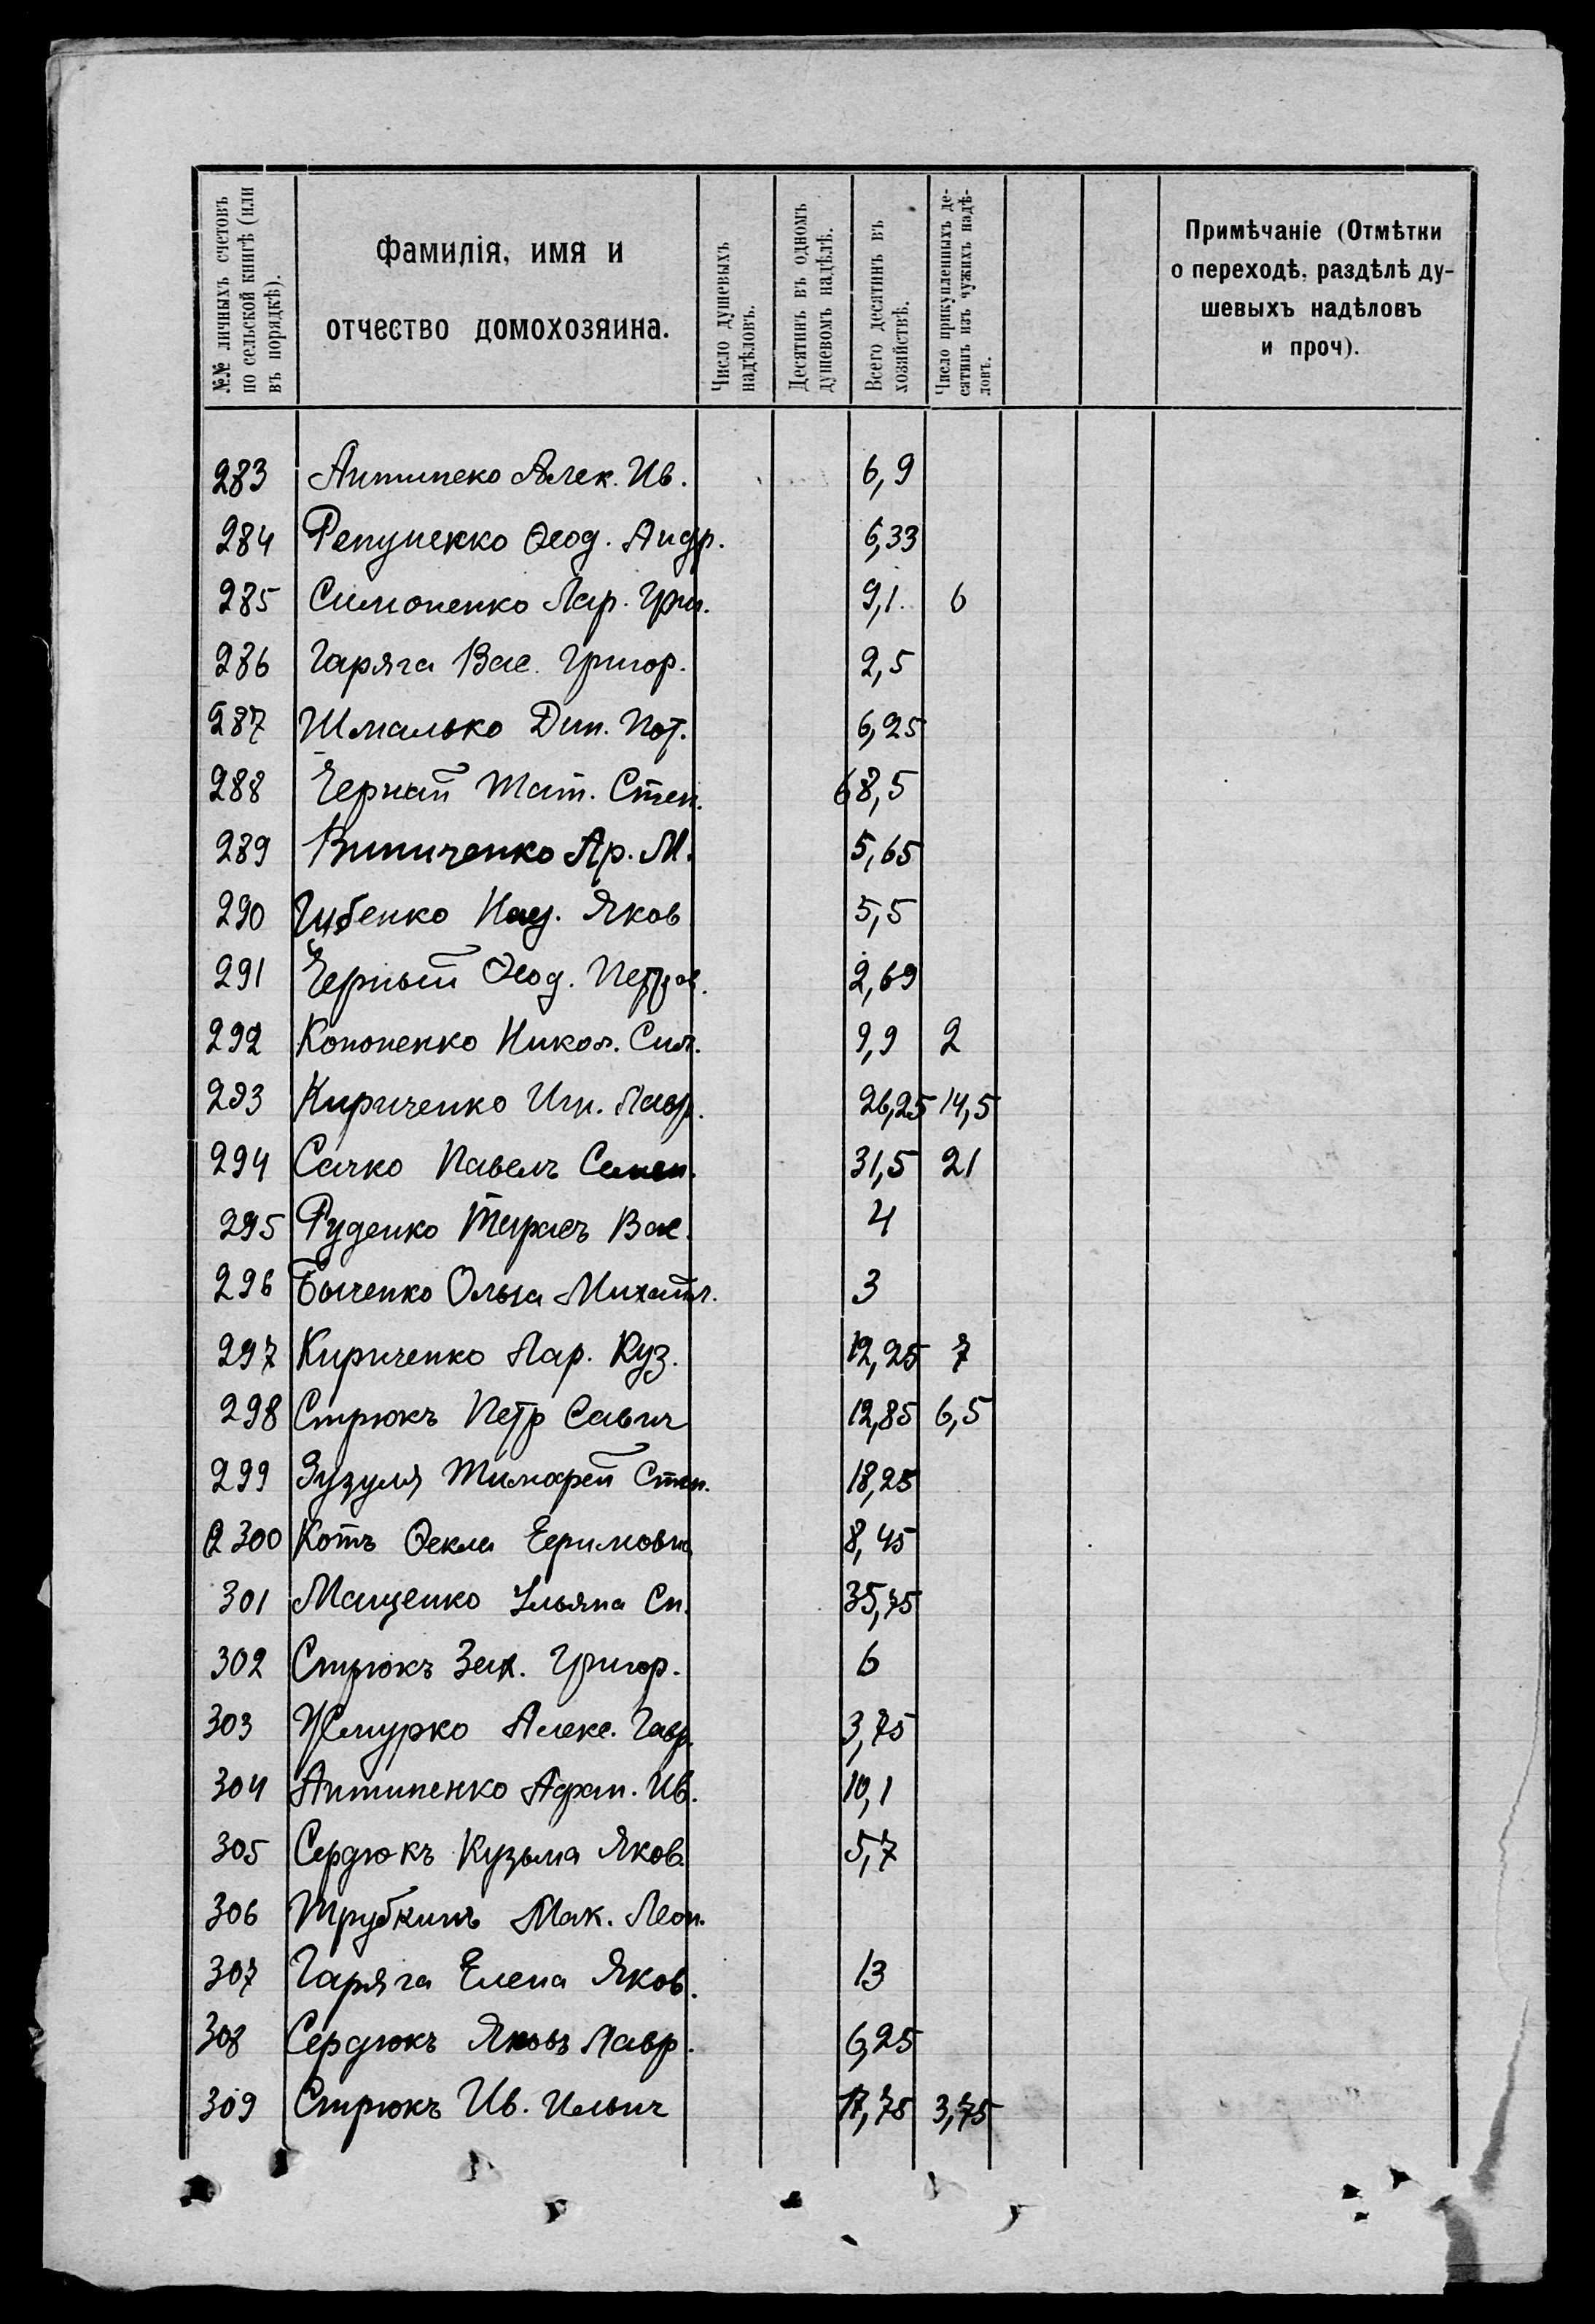 №№ личныхъ счетовъ по сельской книгѣ (или въ порядкѣ).
Фамилія, имя и отчество домохозяина.
Число душевыхъ надѣловъ.
Десятинъ въ одномъ душевомъ надѣлѣ.
Всего десятинъ въ хозяйствѣ.
Число прикупленныхъ десятинъ изъ чужихъ надѣловъ.
Примѣчаніе (Отмѣтки о переходѣ, раздѣлѣ душевыхъ надѣловъ и проч).
283 Антипеко Алек. Ив. 6,9
284 Репуненко Ѳеод. Андр. 6,33
285 Симоненко Лар. Гри. 9,1. 6
286 Гаряга Вас. Григор. 2,5
287 Шмалько Дим. Пот. 6,25
288 Черный Мат. Степ. 68,5
289 Виниченко Ар. М. 5,65
290 Губенко Наз. Яков 5,5
291 Черный Ѳеод. Петров. 2,69
292 Кононенко Никол. Сил. 9,9 2
293 Кириченко Игн. Лавр. 26,25 14,5
294 Сачко Павелъ Семен. 31,5 21
295 Руденко Тарасъ Вас. 4
296 Быченко Ольга Михайл. 3
297 Кириченко Лар. Куз. 12,25 7
298 Стрюкъ Петр Савич 12,85 6,5
299 Зузуля Тимофей Степ. 18,25
300 Котъ Ѳекла 8,45
301 Мащенко Ульяна Сп. 35,75
302 Стрюкъ Зах. Григор. 6
303 Жмурко Алекс. Гавр. 3,75
304 Антипенко Афан. Ив. 10,1
305 Сердюкъ Кузьма Яков. 5,7
306 Трубкинъ Мак. Леон.
307 Гаряга Елена Яков. 13
308 Сердюкъ Яковъ Лавр. 6,25
309 Стрюкъ Ив. Ильич 17,75 3,75